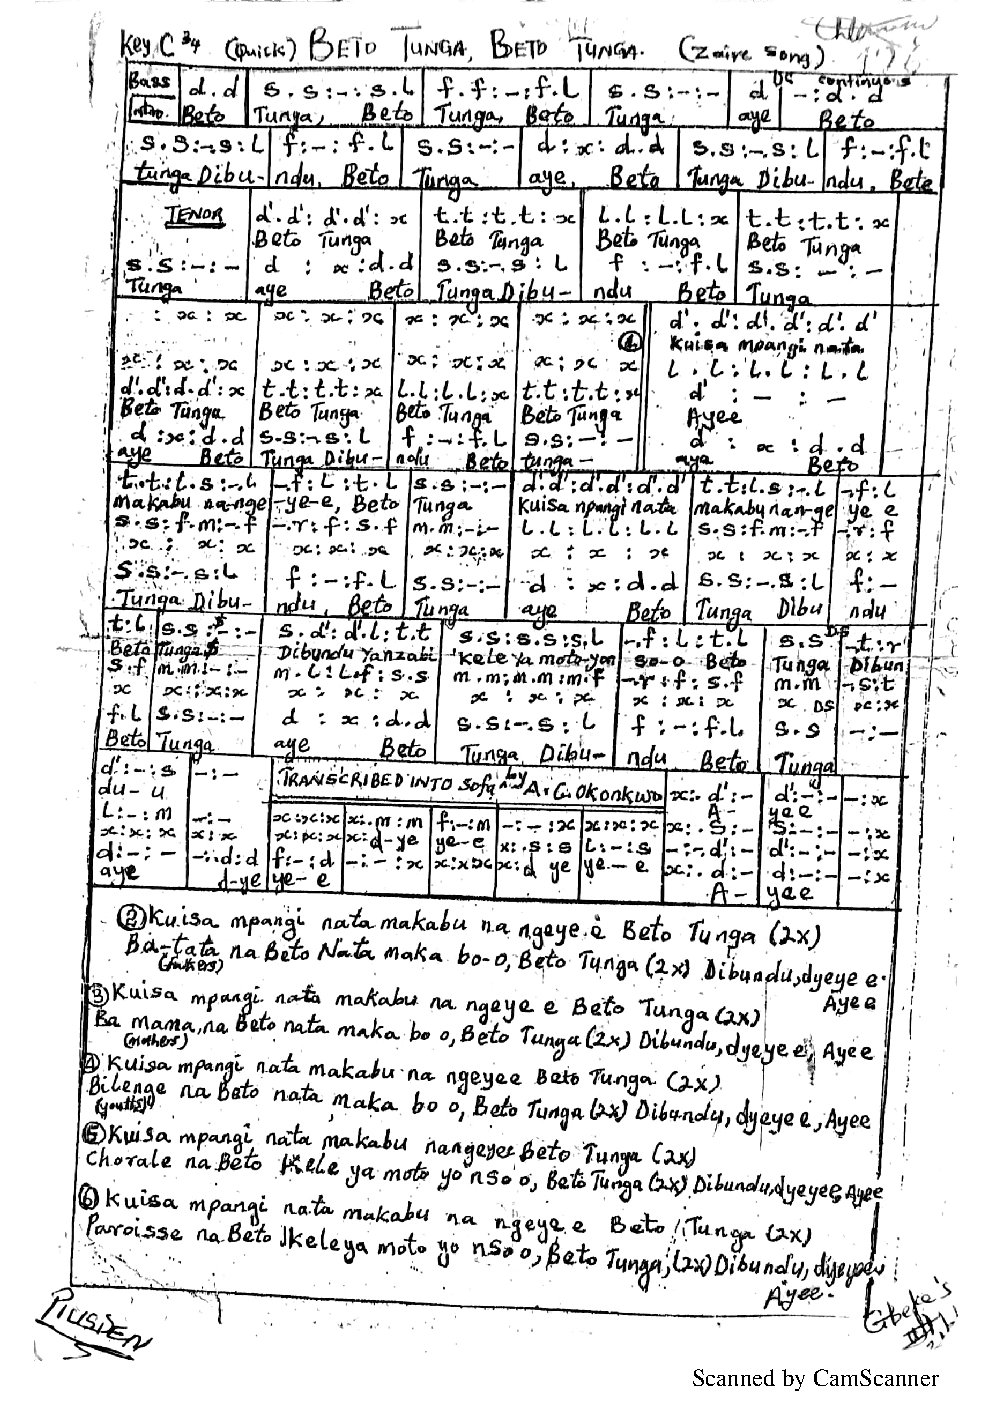 Key C 3/4 (Quick) BETO TUNGA, BETO TUNGA. (Zaire Song)
DC continyos
Bass d.d s.s:-:s.l f.f:-:f.l s.s:-:- d -:d.d
Intro. Beto Tunga, Beto Tunga, Beto Tunga aye Beto
s.s:-.s:l f:-:f.l s.s:-:- d:x:d.d s.s:-.s:l f:-:f.l
tunga Dibu- ndu, Beto Tunga aye, Beto Tunga Dibu- ndu, Bete
TENOR d'.d':d'.d':x t.t:t.t:x l.l:l.l:x t.t:t.t:x
Beto Tunga Beto Tunga Beto Tunga Beto Tunga
s.s:-:- d:x:d.d s.s:-.s:l f:-:f.l s.s:-:-
Tunga aye Beto Tunga Dibu- ndu Beto Tunga
:x:x x:x:x x:x:x x:x:x d'.d':d'.d':d'.d'
① Kuisa mpangi nata
x:x:x x:x:x x:x:x x:x x l.l:l.l:l.l
d'.d':d'.d':x t.t:t.t:x l.l:l.l:x t.t:t.t:x d':-:-
Beto Tunga Beto Tunga Beto Tunga Beto Tunga Ayee
d:x:d.d s.s:-.s:l f:-:f.l s.s:-:- d:x:d.d
aye Beto Tunga Dibu- ndu Beto tunga- aye Beto
t.t:l.s:-.l -.f:l:t.l s.s:-:- d'.d':d'.d':d'.d' t.t:l.s:-.l -.f:l
makabu na-nge -ye-e, Beto Tunga Kuisa npangi nata makabu nan-ge ye e
s.s:f.m:-.f -.r:f:s.f m.m:-:- l.l:l.l:l.l s.s:f.m:-.f -.r:f
x:x:x x:x:x x:x:x x:x:x x:x:x x:x
s.s:-.s:l f:-:f.l s.s:-:- d:x:d.d s.s:-.s:l f:-
Tunga Dibu- ndu, Beto Tunga aye Beto Tunga Dibu ndu
t:l s.s:-:- s.d':d'.l:t.t s.s:s.s:s.l -.f:l:t.l s.s DS -.t:r
Beto Tunga Dibundu Yanzabi 'Kele ya moto-yon so-o Beto Tunga Dibun
s.f m.m:-:- m.l:l.f:s.s m.m:m.m:m.f -.r:f:s.f m.m -.s:t
x x:x:x x:x:x x:x:x x:x:x x DS x:x
f.l s.s:-:- d:x:d.d s.s:-.s:l f:-:f.l s.s -:-
Beto Tunga aye Beto Tunga Dibu- ndu Beto Tunga
d':-:s -:- TRANSCRIBED INTO Sofa by A.G. OKONKWO x:.d':- d':-:- -:x
du- u A- yee
l:-:m -:- x:x:x x:.m:m f:-:m -:-:x x:x:x x:.s:- s:-:- -:x
x:x:x x:x x:x:x x:d-ye ye-e x:.s:s l:-:s -:-.d':- d':-:- -:x
d:-:- -:.d:d f:-:d -:-:x x:x:x x:d ye ye-e x:.d:- d:-:- -:x
aye d-ye ye-e A- yee
② Kuisa mpangi nata makabu na ngeye e Beto Tunga (2x)
Ba-tata na Beto Nata maka bo-o, Beto Tunga (2x) Dibundu, dyeye e.
(fathers) Ayee
③ Kuisa mpangi nata makabu na ngeye e Beto Tunga (2x)
Ba mama, na Beto nata maka bo o, Beto Tunga (2x) Dibundu, dyeye e, Ayee
(mothers)
④ Kuisa mpangi nata makabu na ngeyee Beto Tunga (2x)
Bilenge na Beto nata maka bo o, Beto Tunga (2x) Dibundu, dyeye e, Ayee
(youths)
⑤ Kuisa mpangi nata makabu nangeyee Beto Tunga (2x)
Chorale na Beto Kele ya moto yo nso o, Beto Tunga (2x) Dibundu, dyeyee, Ayee
⑥ Kuisa mpangi nata makabu na ngeye e Beto Tunga (2x)
Paroisse na Beto Ikeleya moto yo nso o, Beto Tunga, (2x) Dibundu, dyeyee
Ayee.
PIUSDEN
Gbeke's
Scanned by CamScanner